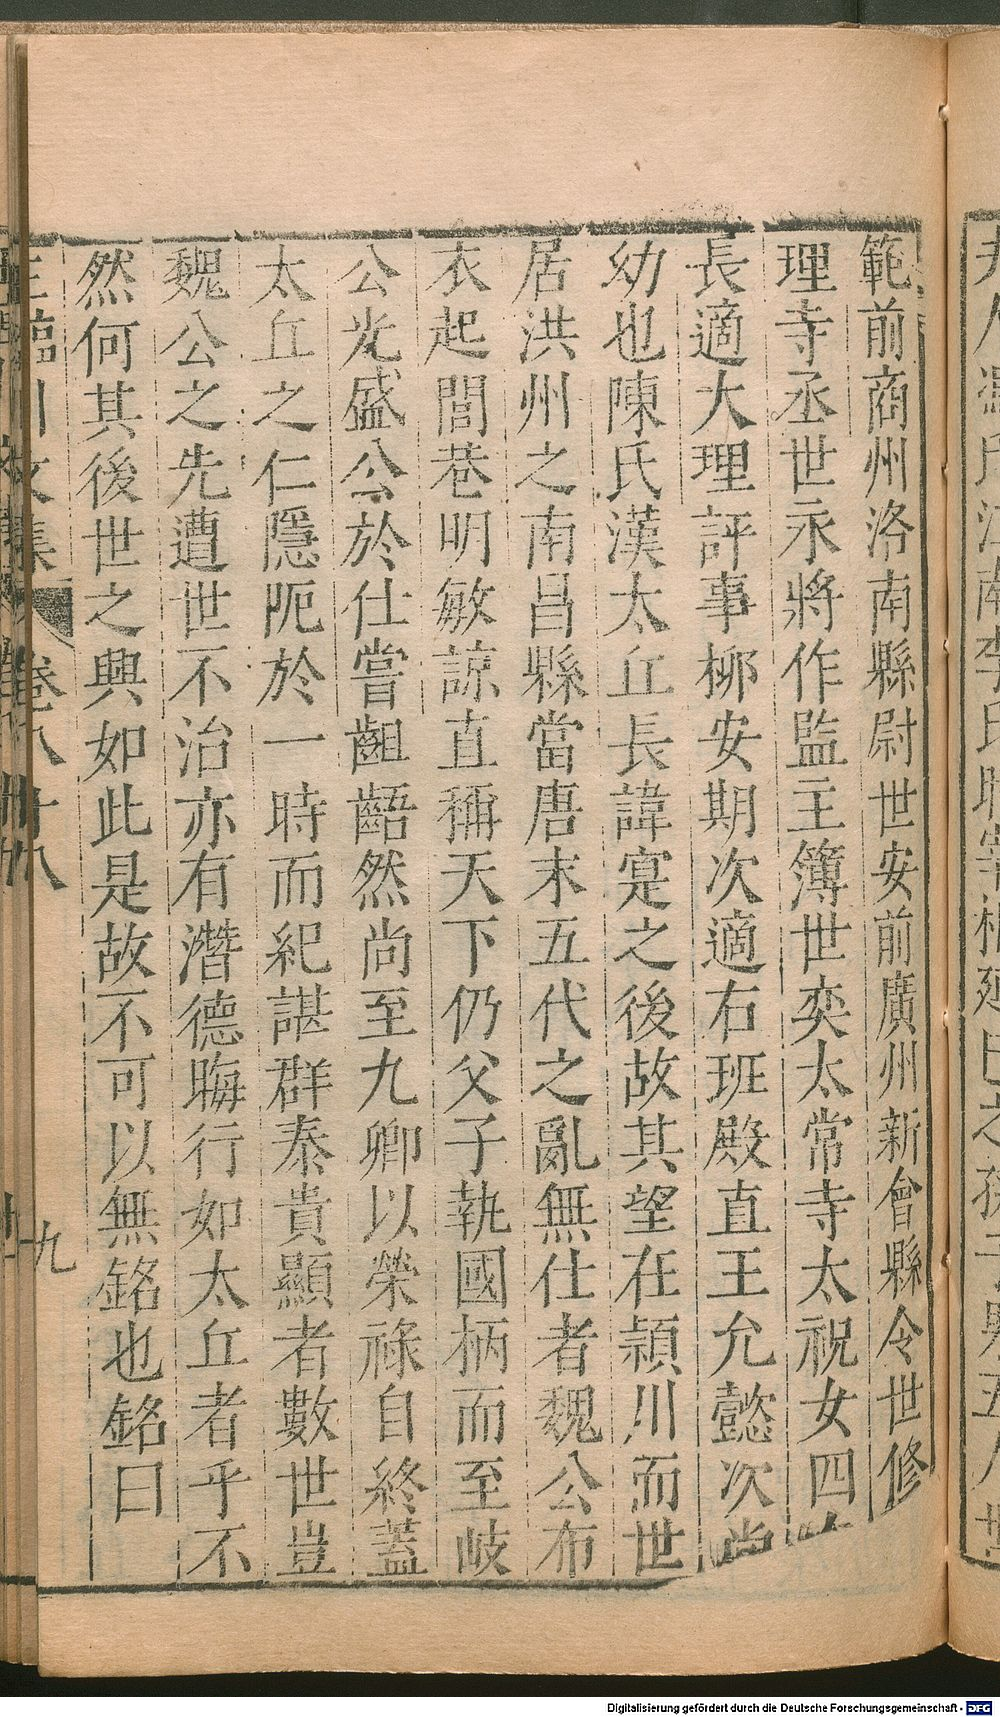 範前商州洛南縣尉世安前廣州新會縣令世修
理寺丞世永將作監主簿世奕太常寺太祝女四
長適大理評事柳安期次適右班殿直王允懿次尚
幼也陳氏漢太丘長諱寔之後故其望在潁川而世
居洪州之南昌縣當唐末五代之亂無仕者魏公布
衣起閭巷明敏諒直稱天下仍父子執國柄而至岐
公光盛公於仕嘗齟齬然尚至九卿以榮祿自終蓋
太丘之仁隱阨於一時而紀諶群泰貴顯者數世豈
魏公之先遭世不治亦有潛德晦行如太丘者乎不
然何其後世之興如此是故不可以無銘也銘曰
王臨川文集 卷八十八 九
Digitalisierung gefördert durch die Deutsche Forschungsgemeinschaft - DFG